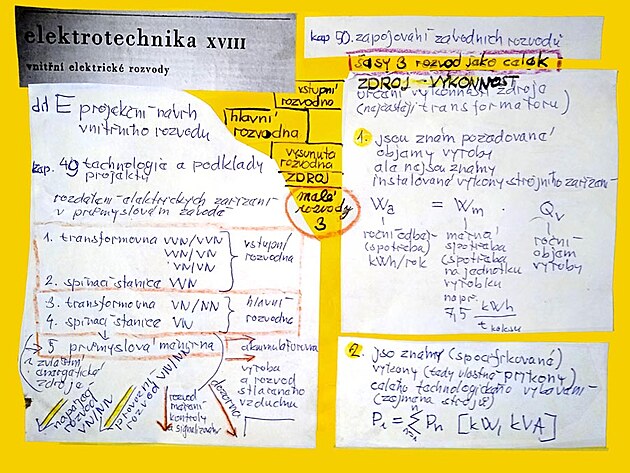 elektrotechnika XVIII
vnitřní elektrické rozvody
díl E projekční návrh
vnitřního rozvodu
kap. 49 technologie a podklady
projektu
rozdělení elektrických zařízení
v průmyslovém závodě
1. transformovna VVN/VVN
VVN/VN
VN/VN
2. spínací stanice VVN
vstupní
rozvodna
3. transformovna VN/NN
4. spínací stanice VN
hlavní
rozvodna
5 průmyslová měnírna
zvláštní
energetické
zdroje
napájecí
rozvod
VN/NN
provozní
rozvod
VN/NN
rozvod
měření
kontroly
a signalizačn
akumulátorovna
výroba
a rozvod
stlačeného
vzduchu
vstupní
rozvodna
hlavní
rozvodna
vysunutá
rozvodna
ZDROJ
malé
rozvody
3
kap 50. zapojování závodních rozvodů
časy 3 rozvod jako celek
ZDROJ - VÝKONNOST
určení výkonnosti zdroje
(nejčastěji transformátoru)
1. jsou znám požadované
objemy výroby
ale nejsou známy
instalované výkony strojního zařízení
Wa = Wm Qv
roční odběr
(spotřeba)
kWh/rok
měrná
spotřeba
(spotřeba
na jednotku
výrobku
např.
7,5 kWh
t koksu
roční
objem
výroby
2. jso známy (specifikované)
výkony (tedy vlastně příkony)
celého technologického vybavení
(zejména strojů)
Pi = Σ Pn [kW, kVA]